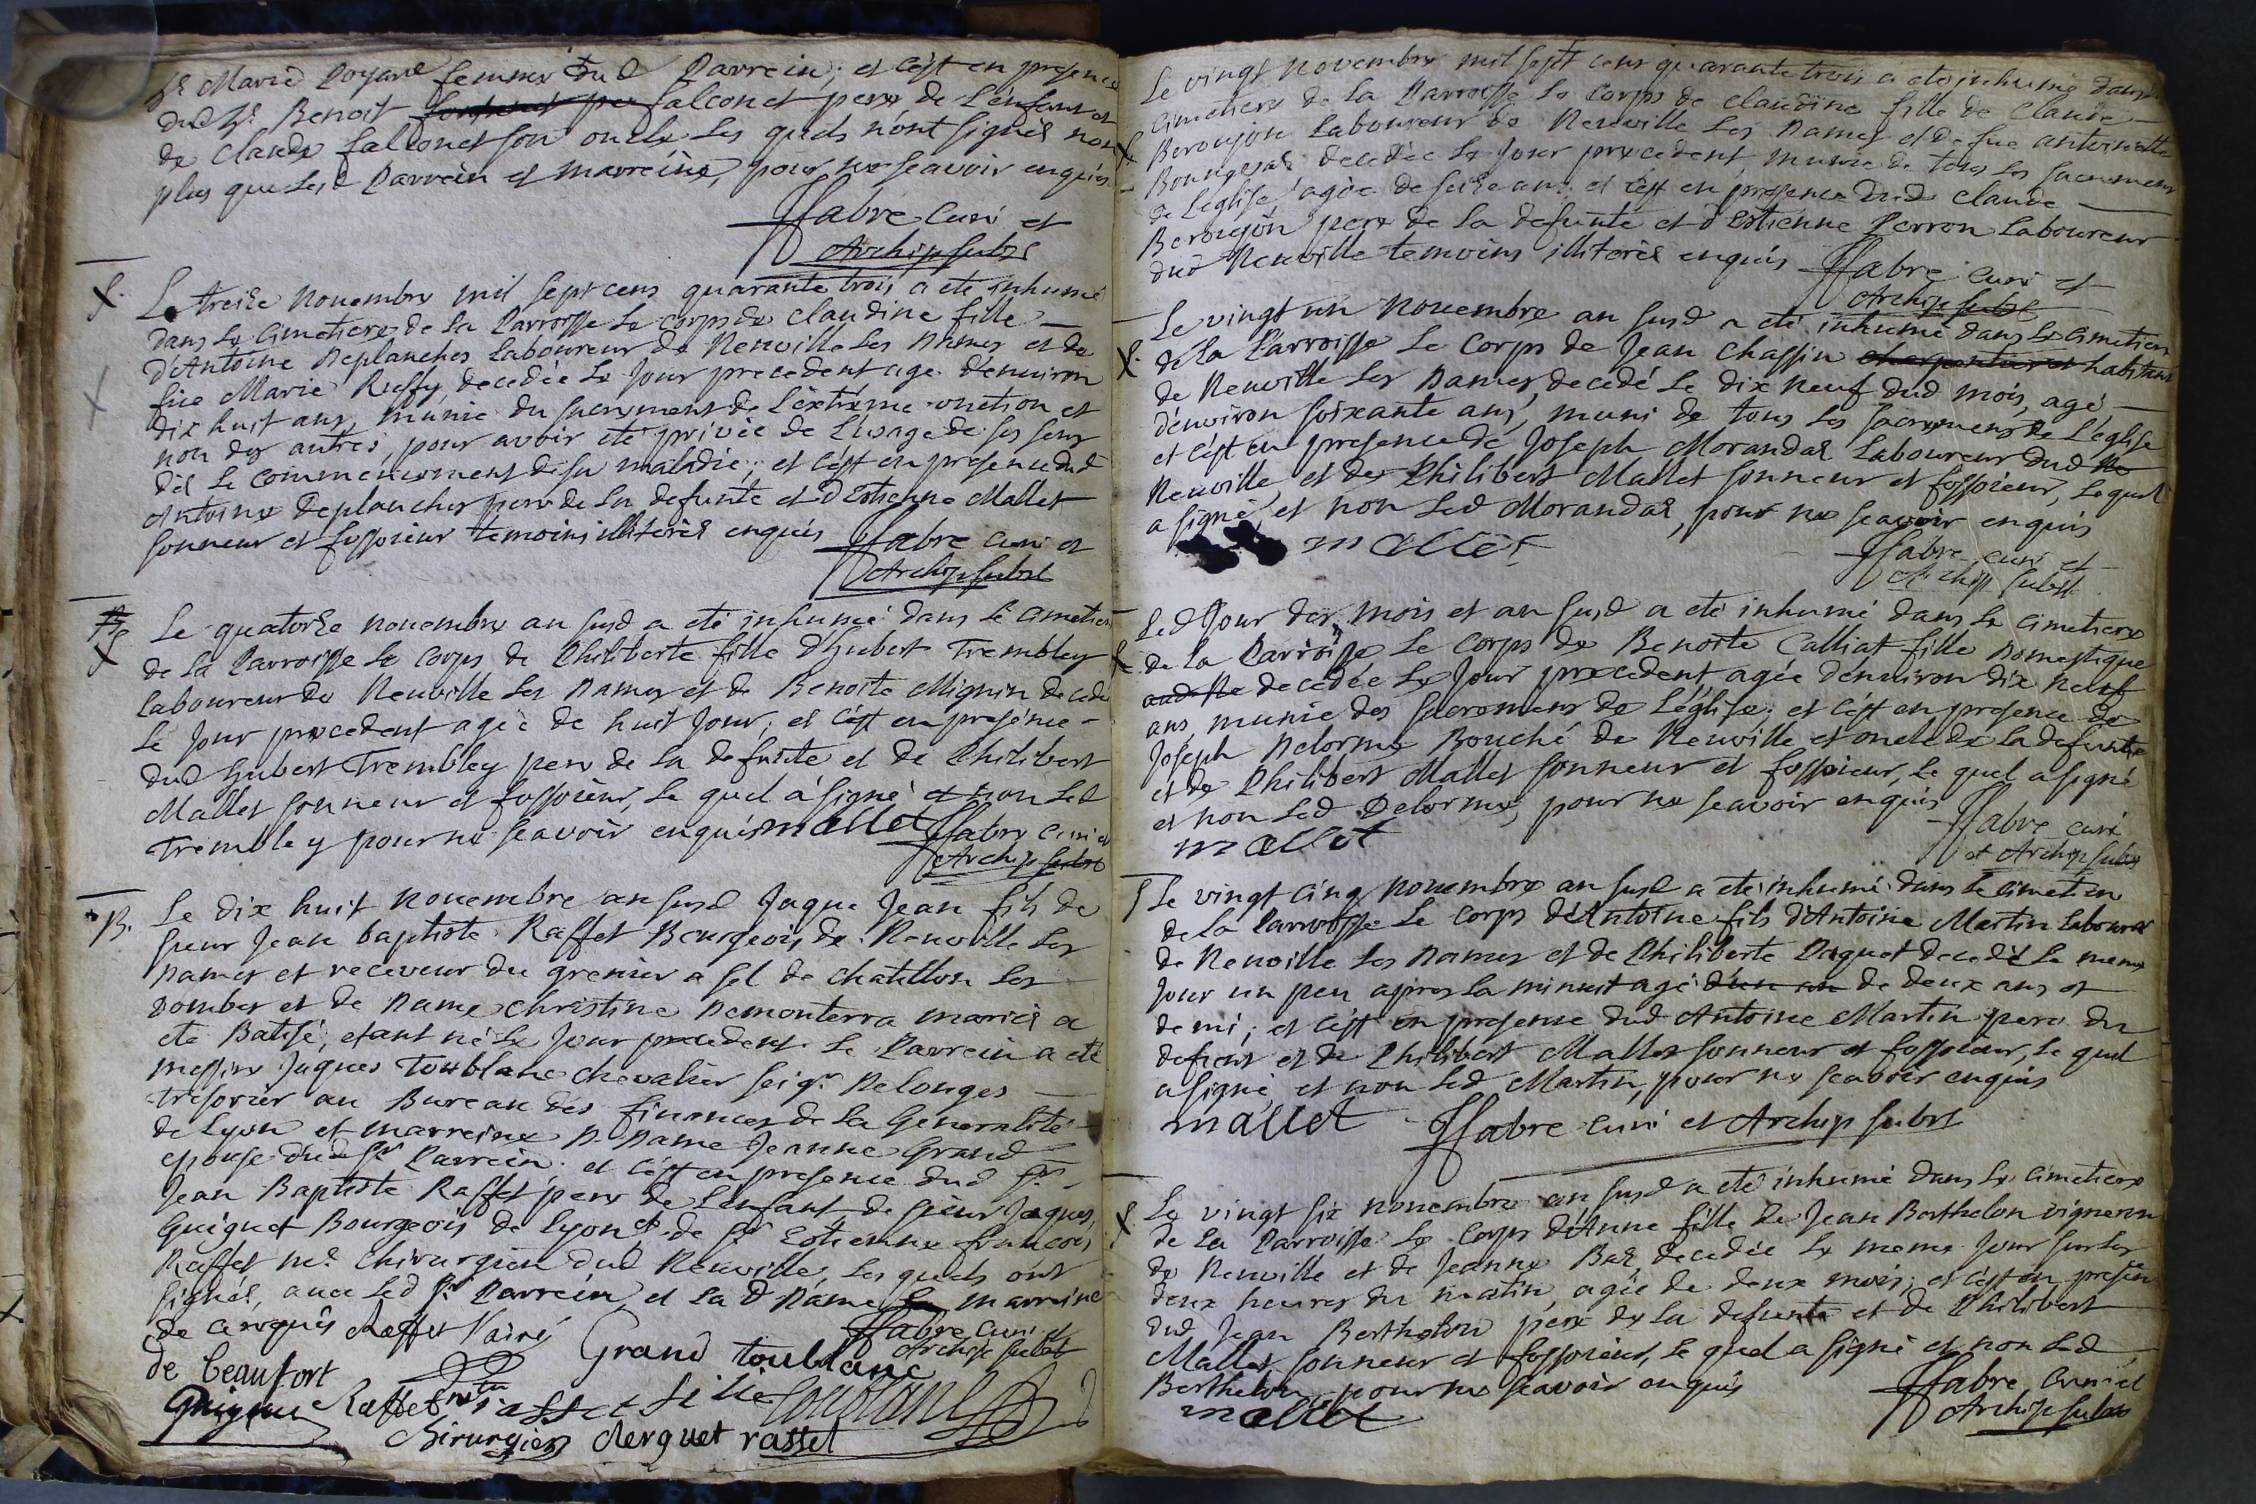 Sr. Marie Poyare femme dud Parrein; et c'est en presence
dud Sr. Benoit falconet pere de l'enfant et
de Claude falconet son oncle les quels n'ont signés non
plus que lesd Parrein et marreine, pour ne scavoir enquis
ffabre curé et
Archip subst
Le treize novembre mil sept cens quarante trois a eté inhumé
dans le cimetiere de la Parroisse le corps de claudine fille
d'Antoine Deplanches laboureur de Neuville les Dames et de
füe Marie Ruffy, decedée le jour precedent agé d'environ
dix huit ans, munie du sacrement de l'extréme onction et
non des autres, pour avoir eté privée de l'usage de ses sens
dès le commencement de sa maladie; et c'est en presence dud
Antoine Deplanches pere de la defunte et d'Estienne Mallet
sonneur et fossoieur temoins illiterés enquis ffabre curé et
Archip subst
Le quatorze novembre an susd a eté inhumé dans le cimetiere
de la Parroisse le corps de Philiberte fille d'hubert Trembley
laboureur de Neuville les Dames et de Benoite Mignin decedé
le jour precedent agée de huit jour; et c'est en presence
dud hubert Trembley pere de la defunte et de Philibert
Mallet sonneur et fossoieur, le quel a signé et non led
Trembley pour ne scavoir enquis mallet ffabre curé et
Archip subst
B. Le dix huit novembre an susd Jaque Jean fils de
sieur Jean baptiste Raffet Bourgeois de Neuville les
Dames et receveur du grenier a sel de chatillon les
Dombes et de Dame Christine Demonterra mariés a
eté Batisé, etant né le jour precedent. Le Parrein a eté
messire Jaques Toublanc chevalier seigr. Delonges
tresorier au Bureau des finances de la Generalité
de Lyon et marreine D Dame Jeanne Grand
epouse dud sr Parrein; et c'est en presence dud sr.
Jean Baptiste Raffet pere de l'enfant de sieur Jaques
Guiguet Bourgeois de Lyon et de sr Estienne francois
Raffet me. Chirurgien dud Neuville, les quels ont
signés, avec led sr Parrein et la d Dame marreine
de ce enquis Raffet l'ainé ffabre curé et
Archip subst
de beaufort Grand toublanc
Guiguet Raffet Toublanc
Chirurgien clerguet rasset
Le vingt novembre mil sept cens quarante trois a eté inhumé dans le
cimetiere de la Parroisse le corps de claudine fille de Claude
Beroujon laboureur de Neuville les Dames et de fue antoinette
decedée le jour precedent munie de tous les sacremens
de l'eglise, agée de seize ans; et c'est en presence dud Claude
Beroujon pere de la defunte et d'Estienne Perron laboureur
dud Neuville temoins illiterés enquis ffabre curé et
Archip subst
Le vingt un novembre an susd a eté inhumé dans le cimetiere
de la Parroisse le corps de Jean chassin charpentier et habitant
de Neuville les Dames, decedé le dix neuf dud mois, agé
d'environ soixante ans, muni de tous les sacremens de l'eglise
et c'est en presence de Joseph Morandas laboureur dud Ne
Neuville et de Philibert Mallet sonneur et fossoieur, le quel
a signé, et non led Morandas, pour ne scavoir enquis
mallet
ffabre curé et
Archip subst
Led Jour des mois et an susd a eté inhumé dans le cimetiere
de la Parroisse le corps de Benoite Calliat fille Domestique
decedée le jour precedent agée d'environ dix neuf
ans munie des sacremens de l'église; et c'est en presence de
Joseph Delorme Bouché de Neuville et oncle de la defunte
et de Philibert Mallet sonneur et fossoieur, le quel a signé
et non led Delorme, pour ne scavoir enquis
ffabre curé
mallet
et Archip subst
Le vingt cinq novembre an susd a eté inhumé dans le cimetiere
de la Parroisse le corps d'Antoine fils d'Antoine Martin laboureur
de Neuville les Dames et de Philiberte Paquet decedé le meme
jour un peu apres la minuit agé d'un an de deux ans et
demi; et c'est en presence dud Antoine Martin pere du
defunt et de Philibert Mallet sonneur et fossoieur, le quel
a signé, et non led Martin, pour ne scavoir enquis
mallet ffabre curé et Archip subst
Le vingt six novembre an susd a eté inhumé dans le cimetiere
de la Parroisse le corps d'Anne fille de Jean Berthelon vigneron
de Neuville et de Jeanne Bas, decedée le meme jour sur les
deux heures du matin, agée de deux mois; et c'est en presence
dud Jean Berthelon pere de la defunte et de Philibert
Mallet sonneur et fossoieur, le quel a signé et non led
Berthelon, pour ne scavoir enquis
ffabre curé et
mallet
Archip subst